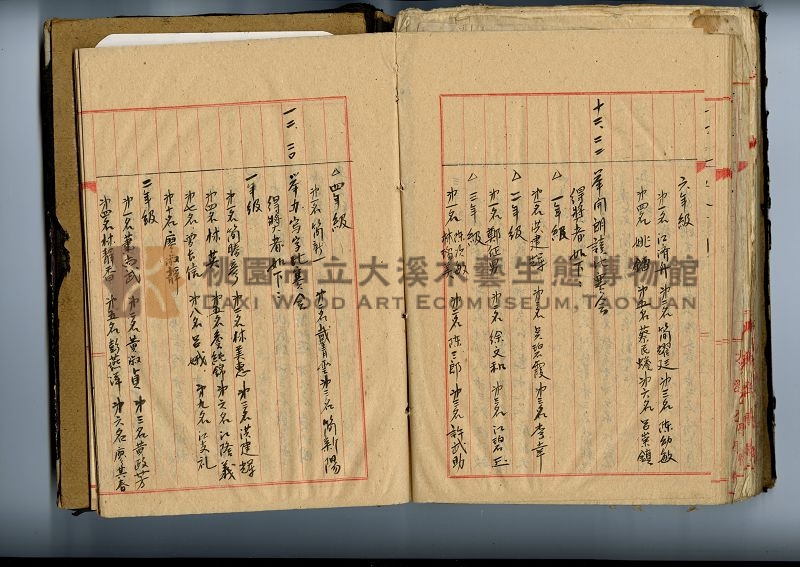 六年級
第一名 江濟舟 第二名 簡耀廷 第三名 陳幼敏
第四名 姚錦 第五名 蔡民 第六名 呂崇鎮
十二、二二 舉開朗讀比賽會
得獎者如下、
△一年級
第一名 洪建輝 第二名 吳碧霞 第三名 李幸
△二年級
第一名 鄭 第二名 徐文和 第三名 江碧玉
△三年級
第一名 陳 敏 第二名 陳三郎 第三名 許武助
林
△四年級
第一名 簡 第二名 戴青雲 第三名 簡新陽
一二、二〇 舉办寫字比賽会
得獎者如下、
一年級
第一名 簡勝 第二名 林美惠 第三名 洪建輝
第四名 林英 第五名 李純錦 第六名 江隆義
第七名 信 第八名 呂娥 第九名 江支礼
第 名 廖 靜
二年級
第一名 葉尚武 第二名 黃淑貞 第三名 黃政芳
第四名 林靜香 第五名 彭燕萍 第六名 廖其春
桃園市立大溪木藝生態博物館
DAXI WOOD ART ECOMUSEUM, TAOYUAN